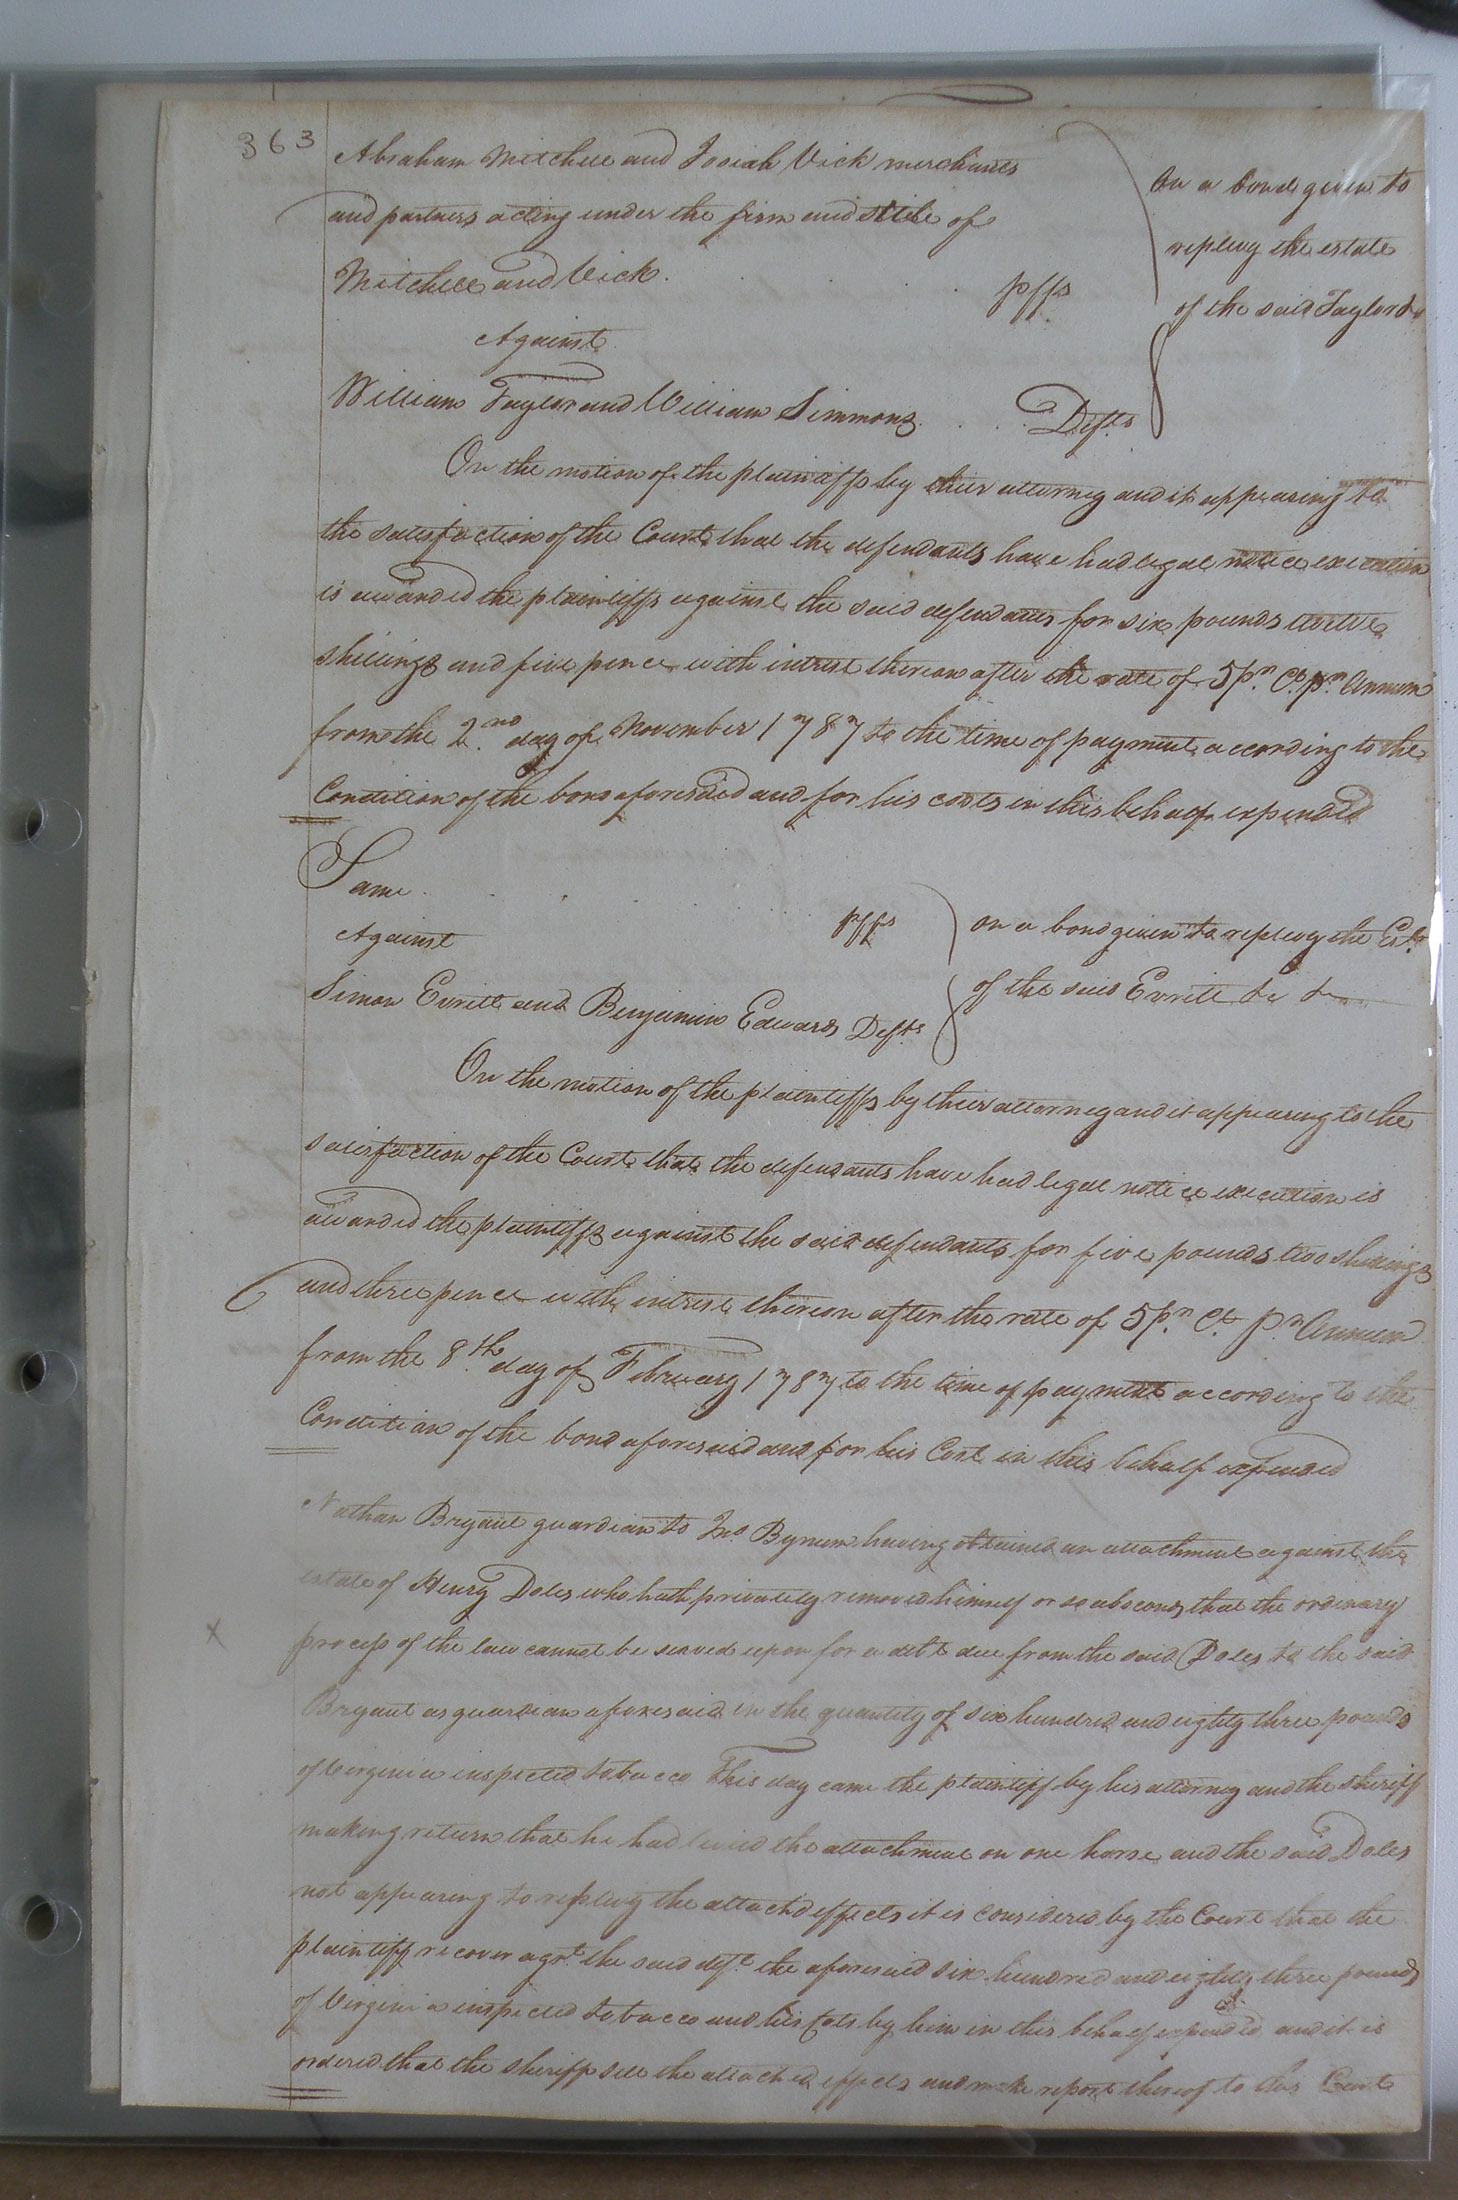 363
Abraham Mitchell and Josiah Vick merchants
and partners acting under the firm and stile of
Mitchell and Vick . . . . plfs
Against
William Taylor and William Simmons . . . Defts
on a bond given to
replevy the estate
of the said Taylor &
On the motion of the plaintiffs by their attorney and it appearing to
the satisfaction of the Court that the defendants have had legal notice execution
is awarded the plaintiffs against the said defendants for six pounds twelve
shillings and five pence with intrest thereon after the rate of 5 pr. Ct. pr. Annum
from the 2nd day of November 1787 to the time of payment according to the
Condition of the bond aforesaid and for his costs in this behalf expended
Same . . . . plfs
Against
Simon Evritt and Benjamin Edwards Defts
on a bond given to replevy the Este
of the said Evritt &c &c
On the motion of the plaintiffs by their attorney and it appearing to the
satisfaction of the Court that the defendants have had legal notice execution is
awarded the plaintiffs against the said defendants for five pounds two shillings
and three pence with intrest thereon after the rate of 5 pr. Ct. pr. Annum
from the 8th day of February 1787 to the time of payment according to the
Condition of the bond aforesaid and for his Cost in this behalf expended
Nathan Bryant guardian to Jno. Bynum having obtained an attachment against the
estate of Henry Doles who hath privately removed himself or so absconds that the ordinary
x process of the law cannot be served upon for a debt due from the said Doles to the said
Bryant as guardian aforesaid in the quantity of six hundred and eighty three pounds
of Virginia inspected tobacco This day came the plaintiff by his attorney and the sheriff
making return that he had levied the attachment on one horse and the said Doles
not appearing to replevy the attachd effects it is considered by the Court that the
plaintiff recover agst. the said deft. the aforesaid six hundred and eighty three pounds
of Virginia inspected tobacco and his Costs by him in this behalf expended and it is
ordered that the sheriff sell the attached effects and make report thereof to this Court